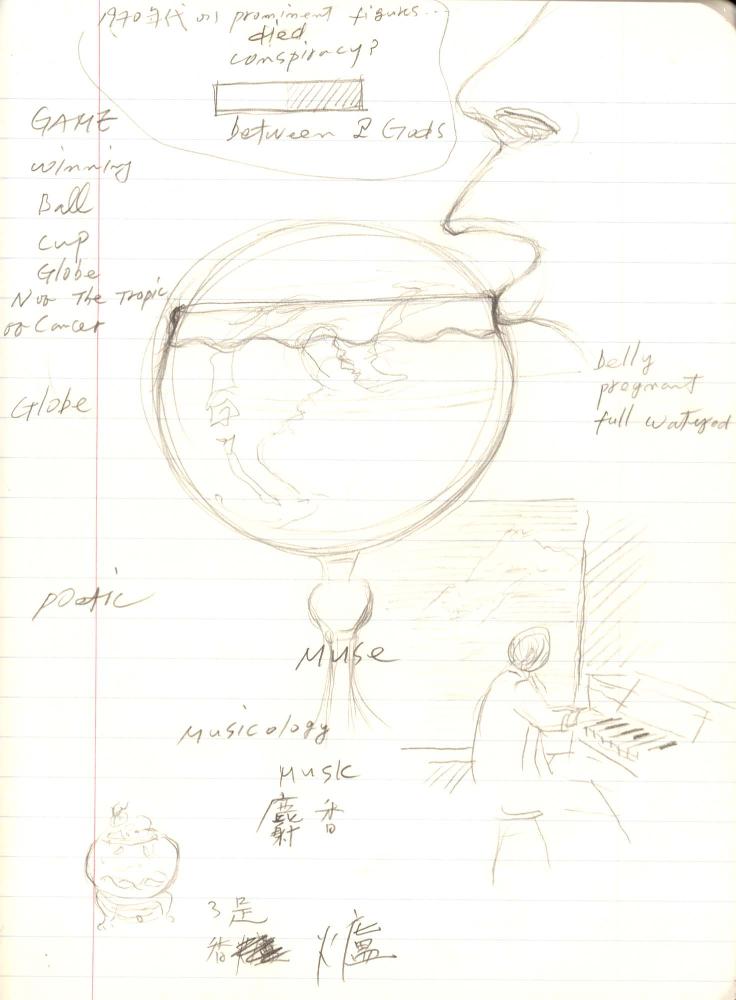 1970年代 on prominent figures...
died
conspiracy?
between 2 Gods
GAME
winning
Ball
cup
Globe
N oo The Tropic
oo Cancer
Globe
belly
pregnant
full watered
poetic
Muse
Musicology
Musk
麝香
3足
香 爐